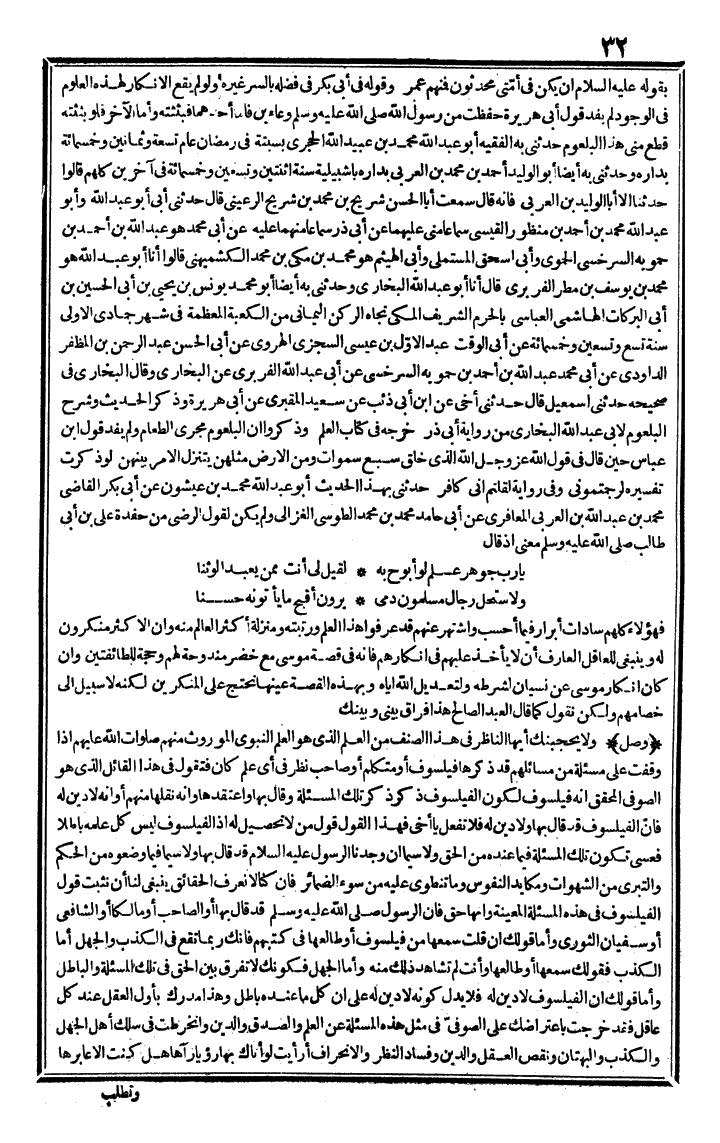 ٣٢
بقوله عليه السلام ان يكن في أمّتي محدثون فمنهم عمر وقوله في أبي بكر في فضله بالسر غيره أو لو لم يقع الانكار لهذه العلوم
في الوجود لم يفد قول أبي هريرة حفظت من رسول الله صلى الله عليه وسلم وعاءين فاما أحدهما فبثثته وأما الآخر فلو بثثته
قطع مني هذا البلعوم حدثني به الفقيه أبو عبد الله محمد بن عبيد الله الحجري بسبتة في رمضان عام تسعة وثمانين وخمسمائة
بداره وحدثني به أيضا أبو الوليد أحمد بن محمد بن العربي بداره باشبيلية سنة اثنتين وتسعين وخمسمائة في آخرين كلهم قالوا
حدثنا الا أبا الوليد بن العربي فانه قال سمعت أبا الحسن شريح بن محمد بن شريح الرعيني قال حدثني أبي أبو عبد الله وأبو
عبد الله محمد بن أحمد بن منظور القيسي سماعا مني عليهما عن أبي ذر سماعا منهما عليه عن أبي محمد هو عبد الله بن أحمد بن
حمويه السرخسي الحموي وأبي اسحق المستملي وأبي الهيثم هو محمد بن مكي بن محمد الكشميهني قالوا أنا أبو عبد الله هو
محمد بن يوسف بن مطر الفربري قال أنا أبو عبد الله البخاري وحدثني به أيضا أبو محمد يونس بن يحيى بن أبي الحسين بن
أبي البركات الهاشمي العباسي بالحرم الشريف المكي تجاه الركن اليماني من الكعبة المعظمة في شهر جمادى الاولى
سنة تسع وتسعين وخمسمائة عن أبي الوقت عبد الاوّل بن عيسى السجزي الهروي عن أبي الحسن عبد الرحمن بن المظفر
الداودي عن أبي محمد عبد الله بن أحمد بن حمويه السرخسي عن أبي عبد الله الفربري عن البخاري وقال البخاري في
صحيحه حدثني اسمعيل قال حدثني أخي عن ابن أبي ذئب عن سعيد المقبري عن أبي هريرة وذكر الحديث وشرح
البلعوم لابي عبد الله البخاري من رواية أبي ذر خرجه في كتاب العلم وذكروا ان البلعوم مجرى الطعام ولم يفد قول ابن
عباس حين قال في قول الله عز وجل الله الذي خلق سبع سموات ومن الارض مثلهن يتنزل الامر بينهن لو ذكرت
تفسيره لرجمتموني وفي رواية لقلتم اني كافر حدثني بهذا الحديث أبو عبد الله محمد بن عيشون عن أبي بكر القاضي
محمد بن عبد الله بن العربي المعافري عن أبي حامد محمد بن محمد الطوسي الغزالي ولم يكن لقول الرضي من حفدة علي بن أبي
طالب صلى الله عليه وسلم معنى اذ قال
يا رب جوهر علم لو أبوح به * لقيل لي أنت ممن يعبد الوثنا
ولاستحل رجال مسلمون دمي * يرون أقبح ما يأتونه حسنا
فهؤلاء كلهم سادات أبرار فيما أحسب واشتهر عنهم قد عرفوا هذا العلم ورتبته ومنزلة أكثر العالم منه وان الاكثر منكرون
له وينبغي للعاقل العارف أن لا يأخذ عليهم في انكارهم فانه في قصة موسى مع خضر مندوحة لهم وحجة للطائفتين وان
كان انكار موسى عن نسيان لشرطه ولتعديل الله اياه وبهذه القصة عينها نحتج على المنكرين لكنه لا سبيل الى
خصامهم ولكن نقول كما قال العبد الصالح هذا فراق بيني وبينك
﴿وصل﴾ ولا يحجبنك أيها الناظر في هذا الصنف من العلم الذي هو العلم النبوي الموروث منهم صلوات الله عليهم اذا
وقفت على مسئلة من مسائلهم قد ذكرها فيلسوف أو متكلم أو صاحب نظر في أي علم كان فتقول في هذا القائل الذي هو
الصوفي المحقق انه فيلسوف لكون الفيلسوف ذكر تلك المسئلة وقال بها واعتقدها وانه نقلها منهم أو انه لا دين له
فانّ الفيلسوف قد قال بها ولا دين له فلا تفعل يا أخي فهذا القول قول من لا تحصيل له اذ الفيلسوف ليس كل علمه باطلا
فعسى تكون تلك المسئلة فيما عنده من الحق ولا سيما ان وجدنا الرسول عليه السلام قد قال بها ولا سيما فيما وضعوه من الحكم
والتبري من الشهوات ومكايد النفوس وما تنطوي عليه من سوء الضمائر فان كنا لا نعرف الحقائق ينبغي لنا أن نثبت قول
الفيلسوف في هذه المسئلة المعينة وانها حق فان الرسول صلى الله عليه وسلم قد قال بها أو الصاحب أو مالكا أو الشافعي
أو سفيان الثوري وأما قولك ان قلت سمعها من فيلسوف أو طالعها في كتبهم فانك ربما تقع في الكذب والجهل أما
الكذب فقولك سمعها أو طالعها وأنت لم تشاهد ذلك منه وأما الجهل فكونك لا تفرق بين الحق في تلك المسئلة والباطل
وأما قولك ان الفيلسوف لا دين له فلا يدل كونه لا دين له على ان كل ما عنده باطل وهذا مدرك بأول العقل عند كل
عاقل فقد خرجت باعتراضك على الصوفيّ في مثل هذه المسئلة عن العلم والصدق والدين وانخرطت في سلك أهل الجهل
والكذب والبهتان ونقص العقل والدين وفساد النظر والانحراف أرأيت لو أتاك بها رؤيا رآها هل كنت الا عابرها
وتطلب